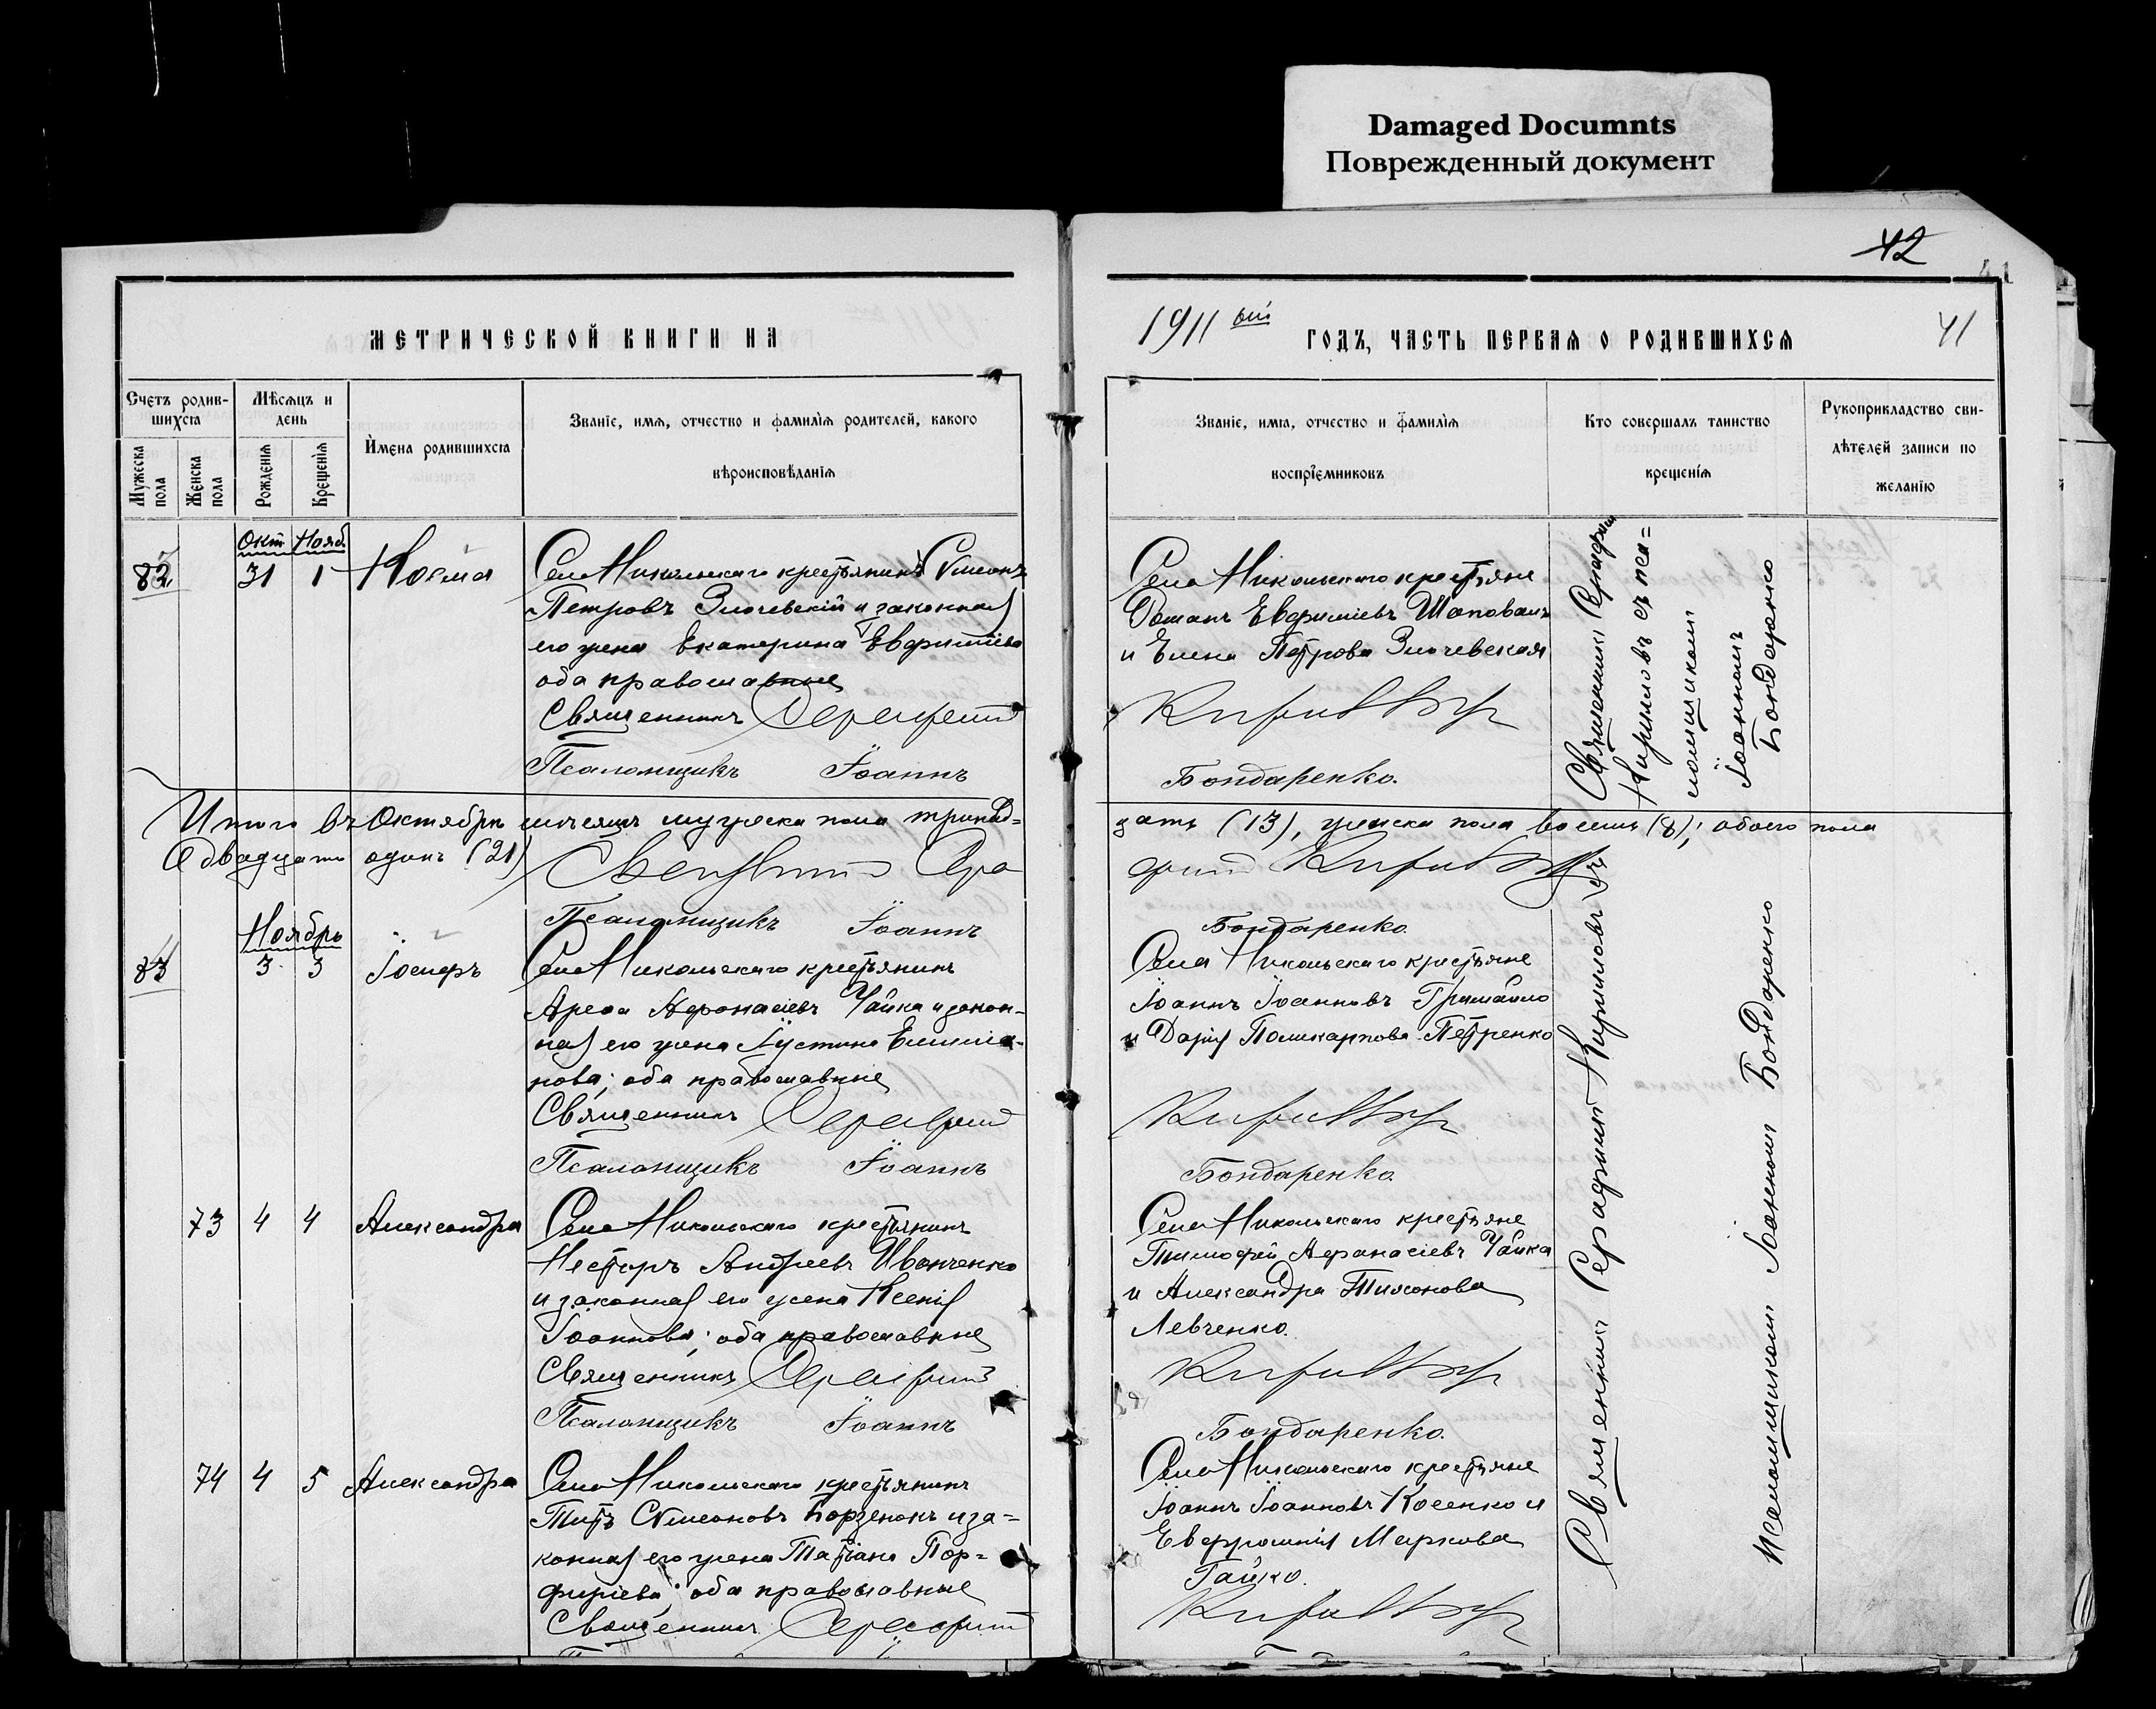 Damaged Documnts
Поврежденный документ
42
41
МЕТРИЧЕСКОЙ КНИГИ НА
1911 ый
ГОДЪ, ЧАСТЬ ПЕРВАЯ О РОДИВШИХСЯ
41
Счетъ родив-
шихся
Мужеска
пола
Женска
пола
Мѣсяцъ и
день
Рожденія
Крещенія
Имена родившихся
Званіе, имя, отчество и фамилія родителей, какого
вѣроисповѣданія
Званіе, имя, отчество и фамилія
воспріемниковъ
Кто совершалъ таинство
крещенія
Рукоприкладство сви-
дѣтелей записи по
желанію
Окт Нояб.
82 31 1
Села Никольскаго крестьянинъ Сѵмеонъ
Петровъ Злочевскій и законная
его жена Екатерина Евфиміева
оба православные
Священникъ Серафимъ
Псаломщикъ Іоаннъ
Села Никольскаго крестьяне
Романъ Евфиміевъ Шаповалъ
и Елена Петрова Злочевская
Кирилловъ
Бондаренко.
Священникъ Серафимъ
Кирилловъ съ пса=
ломщикомъ
Іоанномъ
Бондаренко
Итого въ Октябрѣ мѣсяцѣ мужеска пола тринад=
цать (13), женска пола восемь (8); обоего пола
двадцать одинъ (21)
Священникъ Сера
фимъ Кирилловъ
Псаломщикъ Іоаннъ
Бондаренко.
Ноябрь
83 3 3 Іосифъ
Села Никольскаго крестьянинъ
Арефа Афанасіевъ Чайка и закон-
ная его жена Іустина Емилiа-
нова; оба православные
Священникъ Серафимъ
Псаломщикъ Іоаннъ
Села Никольскаго крестьяне
Іоаннъ Іоанновъ
и Дарія Поликарпова Петренко
Кирилловъ
Бондаренко.
73 4 4 Александра
Села Никольскаго крестьянинъ
Несторъ Андреевъ Иванченко
и законная его жена Ксенія
Іоаннова; оба православные
Священникъ Серафимъ
Псаломщикъ Іоаннъ
Села Никольскаго крестьяне
Тимофей Афанасіевъ Чайка
и Александра Тихонова
Левченко.
Кирилловъ
Бондаренко.
74 4 5 Александра
Села Никольскаго крестьянинъ
Титъ Сѵмеоновъ Борзенокъ и за=
конная его жена Татіана Пор=
фиріева; оба православные
Священникъ Серафимъ
Села Никольскаго крестьяне
Іоаннъ Іоанновъ Косенко и
Евфросинія Маркова
Гайко.
Кирилловъ
Священникъ Серафимъ Кирилловъ съ
псаломщикомъ Іоанномъ Бондаренко